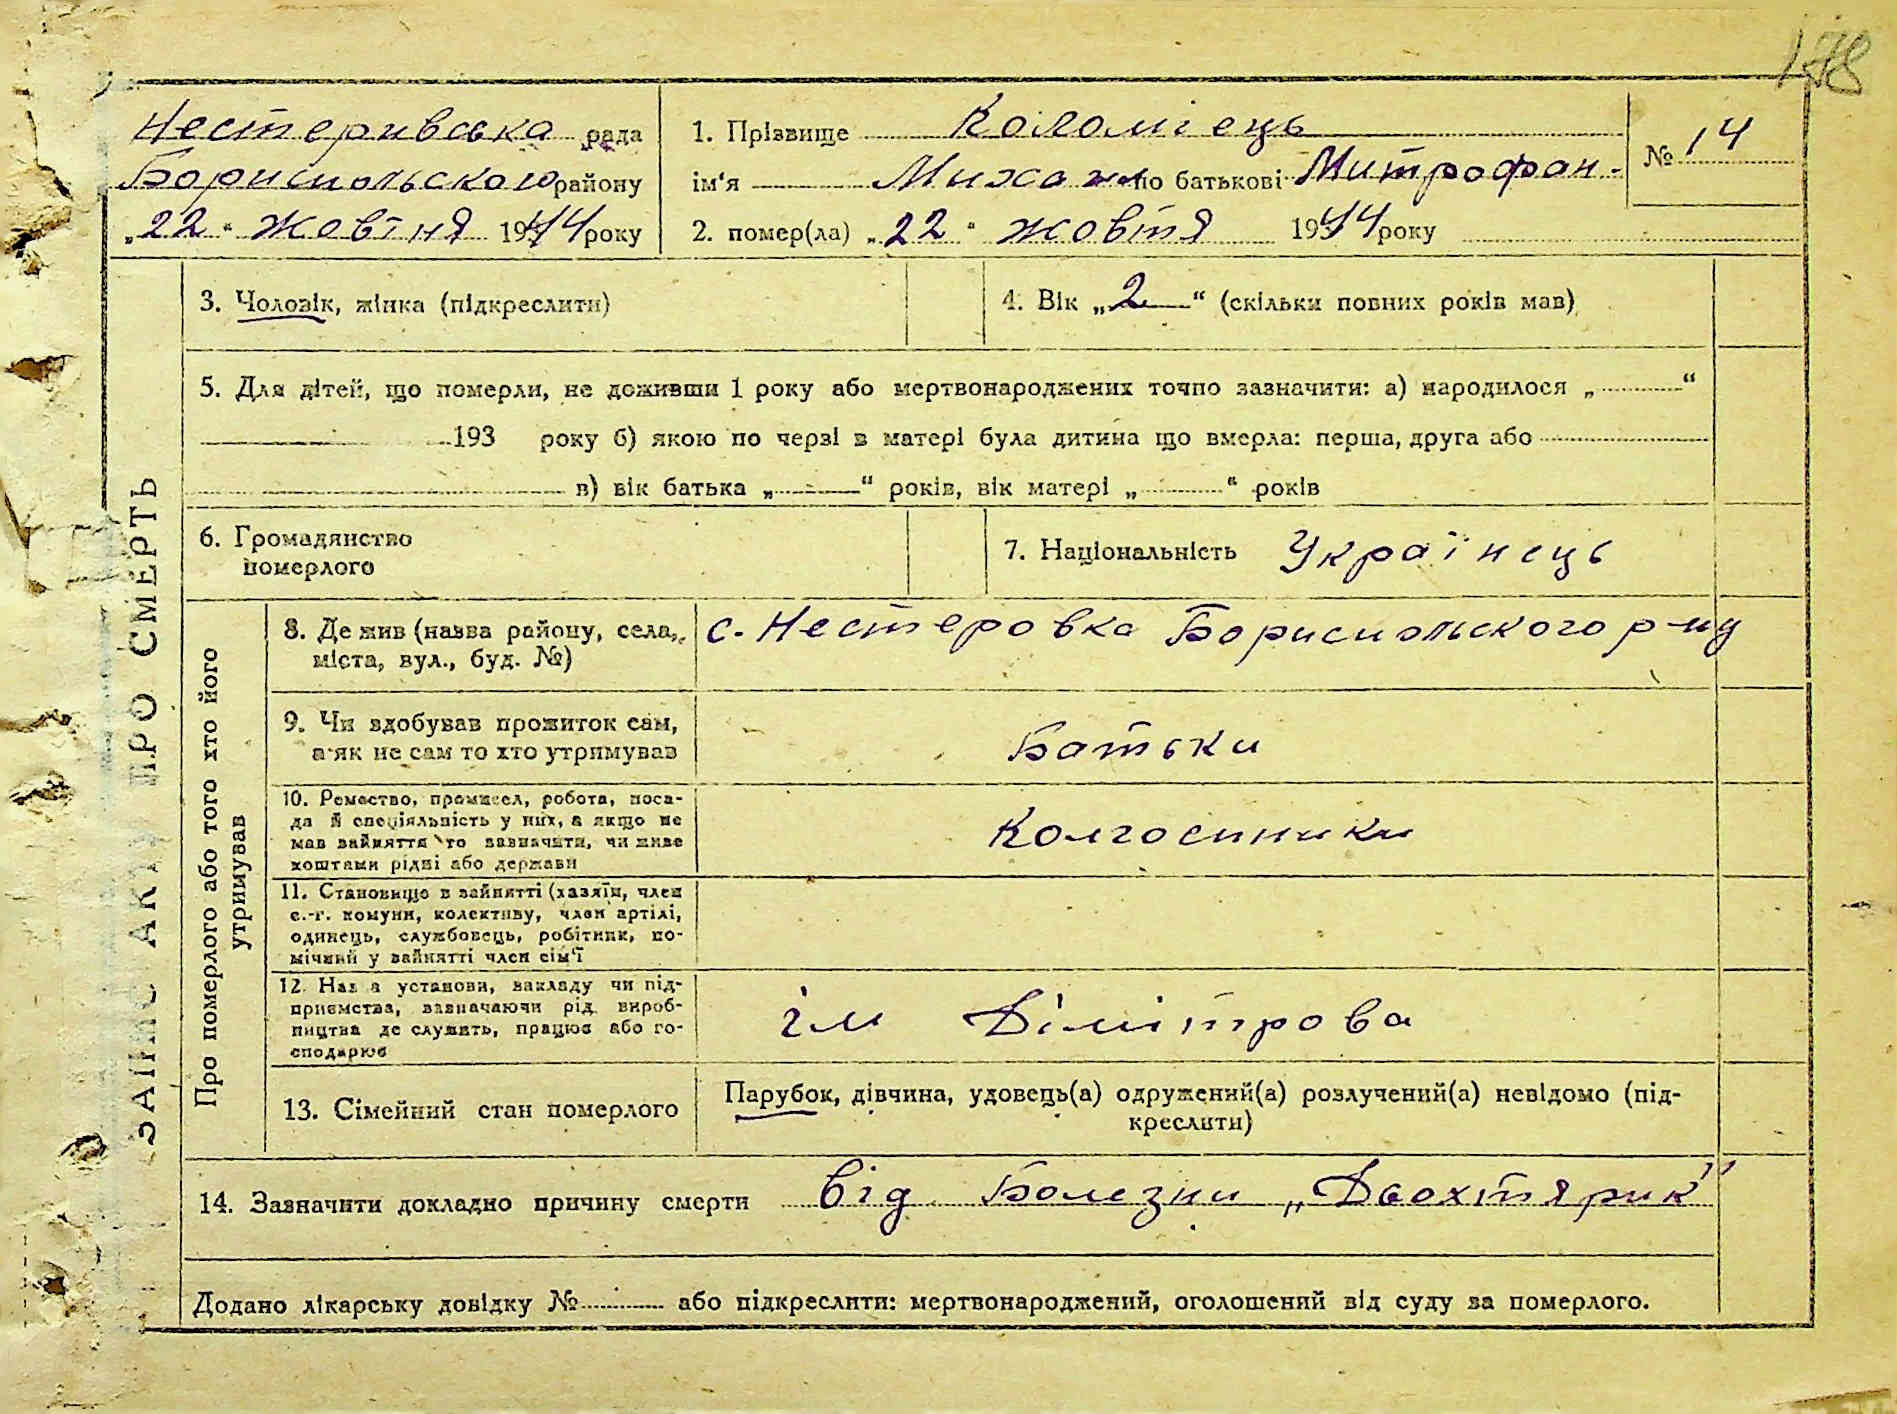 178
Нестеривська рада
Бориспольского району
„22“ жовтня 1944 року
1. Прізвище Коломіець
ім'я Михаил по батькові Митрофан.
2. помер(ла) „22“ жовтя 1944 року
№ 14
3. Чоловік, жінка (підкреслити)
4. Вік „2“ (скільки повних років мав)
5. Для дітей, що померли, не доживши 1 року або мертвонароджених точно зазначити: а) народилося „ “
193 року б) якою по черзі в матері була дитина що вмерла: перша, друга або
в) вік батька „ “ років, вік матері „ “ років
6. Громадянство
померлого
7. Національність Українець
ЗАПИС АКТУ ПРО СМЕРТЬ
Про померлого або того хто його
утримував
8. Де жив (назва району, села,
міста, вул., буд. №)
с. Нестеровка Бориспольского р-ну
9. Чи здобував прожиток сам,
а як не сам то хто утримував
Батьки
10. Ремество, промисел, робота, поса-
да й спеціяльність у них, а якщо не
мав зайняття то зазначити, чи живе
коштами рідні або держави
Колгоспники
11. Становище в зайнятті (хазяїн, член
с.-г. комуни, колективу, член артілі,
одинець, службовець, робітник, по-
мічний у зайнятті член сім'ї
12. Наз а установи, закладу чи під-
приємства, зазначаючи рід вироб-
ництва де служить, працює або го-
сподарює
ім Дімітрова
13. Сімейний стан померлого
Парубок, дівчина, удовець(а) одружений(а) розлучений(а) невідомо (під-
креслити)
14. Зазначити докладно причину смерти від Болезни „Двохтярик"
Додано лікарську довідку № або підкреслити: мертвонароджений, оголошений від суду за померлого.